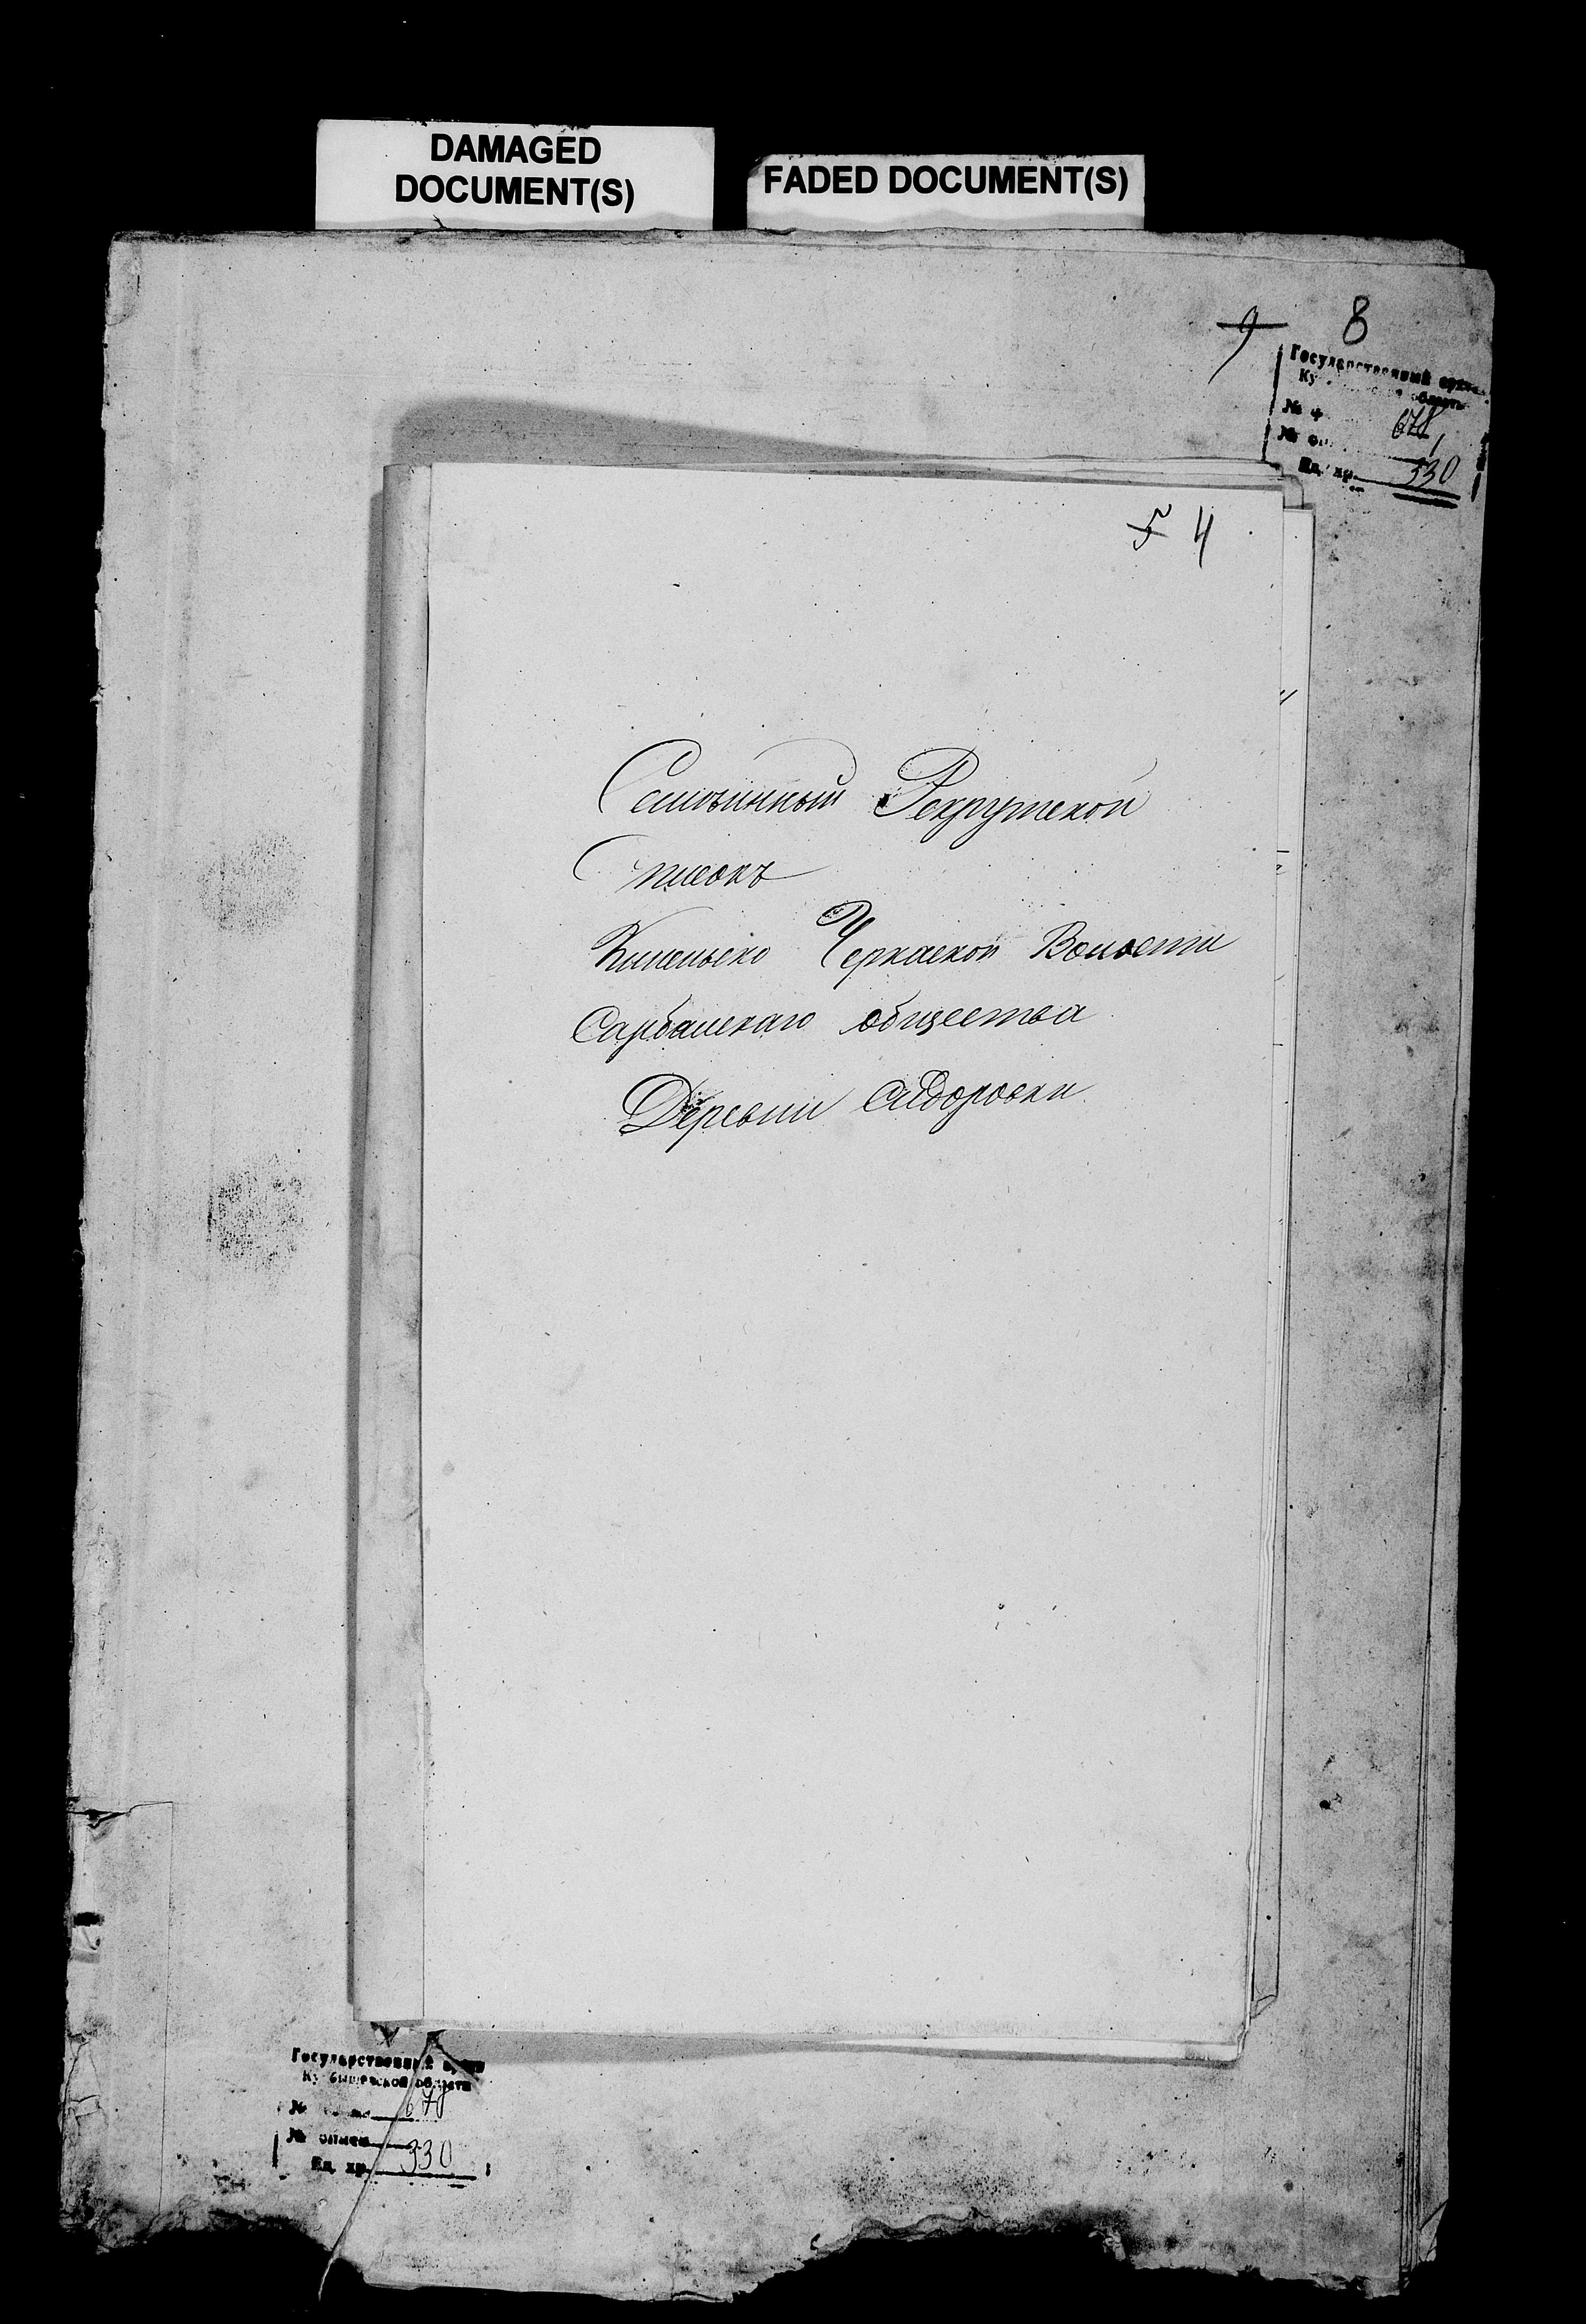 DAMAGED
DOCUMENT(S)
FADED DOCUMENT(S)
9 8
Государственный архив
области
№ ф. 678
№ оп. 1
Ед. хр. 330
5 4
Семейнный Рекрутской
Список
Кинельско Черкаской Волости
Сарбайскаго общества
Деревни Сидоровки
Государственный архив
Куйбышевской области
№ 678
№ описи
Ед. хр. 330